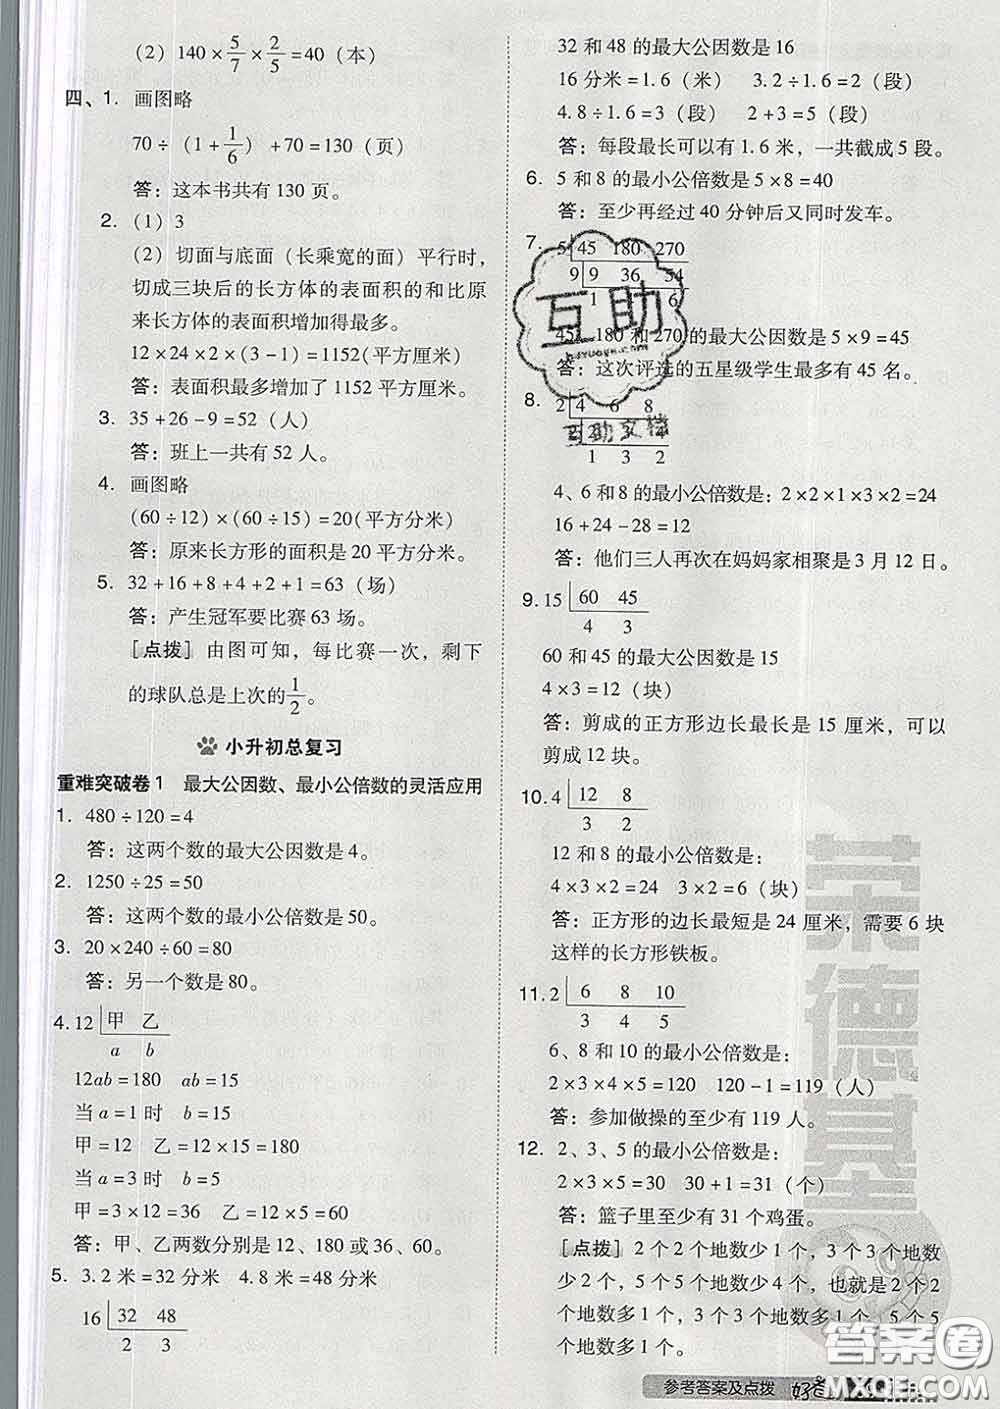 (2) 140×5/7×2/5=40(本)
四、1. 画图略
70÷(1+1/6)+70=130(页)
答:这本书共有 130 页。
2. (1) 3
(2) 切面与底面(长乘宽的面)平行时,
切成三块后的长方体的表面积的和比原
来长方体的表面积增加得最多。
12×24×2×(3-1)=1152(平方厘米)
答:表面积最多增加了 1152 平方厘米。
3. 35+26-9=52(人)
答:班上一共有 52 人。
4. 画图略
(60÷12)×(60÷15)=20(平方分米)
答:原来长方形的面积是 20 平方分米。
5. 32+16+8+4+2+1=63(场)
答:产生冠军要比赛 63 场。
[点拨] 由图可知,每比赛一次,剩下
的球队总是上次的1/2。
小升初总复习
重难突破卷1 最大公因数、最小公倍数的灵活应用
1. 480÷120=4
答:这两个数的最大公因数是 4。
2. 1250÷25=50
答:这两个数的最小公倍数是 50。
3. 20×240÷60=80
答:另一个数是 80。
4. 12 甲 乙
a b
12ab=180 ab=15
当 a=1 时 b=15
甲=12 乙=12×15=180
当 a=3 时 b=5
甲=3×12=36 乙=12×5=60
答:甲、乙两数分别是 12、180 或 36、60。
5. 3.2 米=32 分米 4.8 米=48 分米
16 32 48
2 3
32 和 48 的最大公因数是 16
16 分米=1.6(米) 3.2÷1.6=2(段)
4.8÷1.6=3(段) 2+3=5(段)
答:每段最长可以有 1.6 米,一共截成 5 段。
6. 5 和 8 的最小公倍数是 5×8=40
答:至少再经过 40 分钟后又同时发车。
7. 5 45 180 270
9 9 36 54
1 6
45、180 和 270 的最大公因数是 5×9=45
答:这次评选的五星级学生最多有 45 名。
互助
互助文档
8. 2 4 6 8
2 2 3 4
1 3 2
4、6 和 8 的最小公倍数是:2×2×1×3×2=24
16+24-28=12
答:他们三人再次在妈妈家相聚是 3 月 12 日。
9. 15 60 45
4 3
60 和 45 的最大公因数是 15
4×3=12(块)
答:剪成的正方形边长最长是 15 厘米,可以
剪成 12 块。
10. 4 12 8
3 2
12 和 8 的最小公倍数是:
4×3×2=24 3×2=6(块)
答:正方形的边长最短是 24 厘米,需要 6 块
这样的长方形铁板。
11. 2 6 8 10
3 4 5
6、8 和 10 的最小公倍数是:
2×3×4×5=120 120-1=119(人)
答:参加做操的至少有 119 人。
12. 2、3、5 的最小公倍数是:
2×3×5=30 30+1=31(个)
答:篮子里至少有 31 个鸡蛋。
[点拨] 2 个 2 个地数少 1 个,3 个 3 个地数
少 2 个,5 个 5 个地数少 4 个,也就是 2 个 2
个地数多 1 个,3 个 3 个地数多 1 个,5 个 5
个地数多 1 个。
荣德基
参考答案及点拨
答案圈